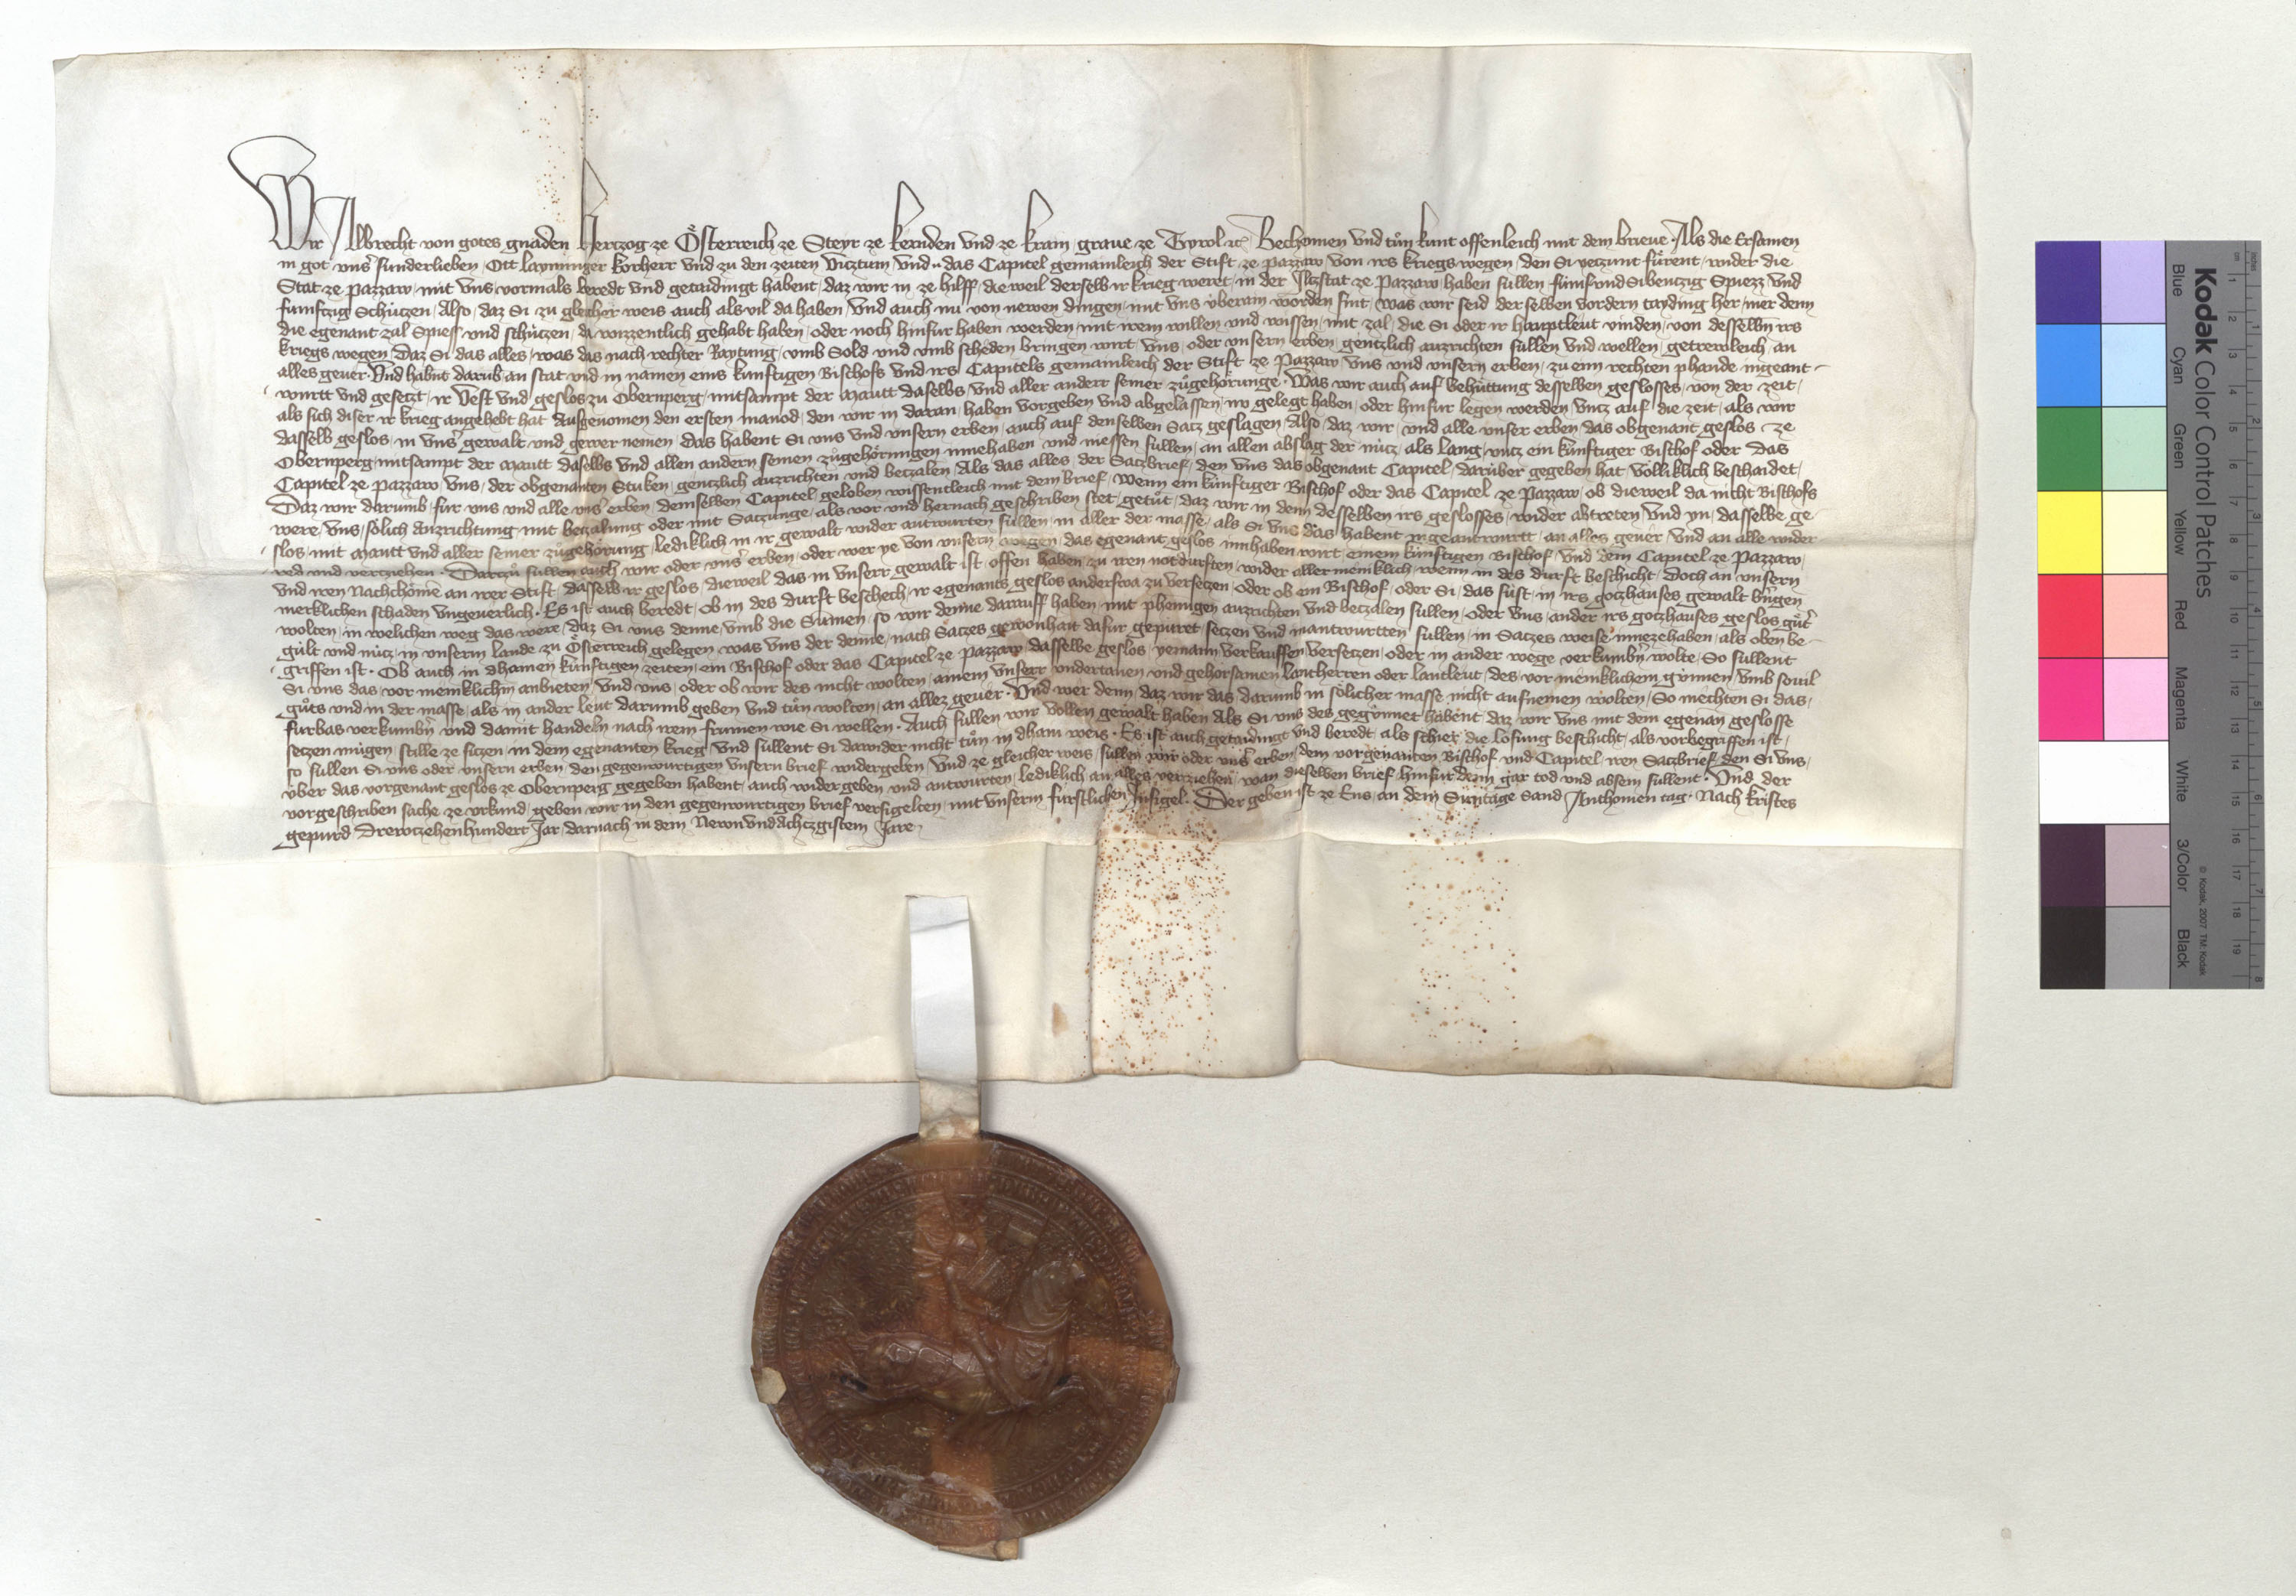 Wir Albrecht von gotes gnaden Hertzog ze Österreich ze Steyr ze Kernden vnd ze Krain graue ze Tyrol etc Bechennen vnd tůn kunt offenleich mit dem brieue. Als die Ersamen
in got vnser sunderlieben Ott Layminger Korherr vnd zu den zeiten Vicztum vnd das Capitel gemainleich der Stift ze Pazzaw von irs kriegs wegen den Si yeczunt fürent wider die
Stat ze Pazzaw mit vns vormals beredt vnd getaidingt habent daz wir in ze hilff dieweil derselb ir krieg weret in der Ilczstat ze Pazzaw haben sullen fümf vnd Sibenczig Spiezz vnd
fumftzig Schüczen Also daz Si zu gleicher weis auch als vil da haben Vnd auch nu von newen dingen mit vns überain worden sint was wir seid derselben vordern tayding her mer denn
die egenant zal Spiess vnd schüczen da wizzentlich gehabt haben oder noch hinfur haben werden mit irem willen vnd wissen mit zal die Si oder ir hauptleut vinden von desselbn irs
kriegs wegen Daz Si das alles was das nach rechter Raytung vmb Sold vnd vmb scheden bringen wirt vns oder vnsern erben gentzlich auzrichten sullen vnd wellen getrewleich an
alles geuer. Vnd habnt darub an stat vnd in namen eins kunftigen Bischofs vnd irs Capitels gemainleich der Stift ze Pazzaw vns vnd vnsern erben zu eim rechten phande ingeant
wurtt vnd gesetzt ir Vest vnd geslos zu Obernperg mitsampt der Mautt daselbs vnd aller anderr seiner zůgehörunge. Was wir auch auf behüttung desselben geslosses von der zeit
als sich diser ir krieg angehebt hat Ausgenomen den ersten manod den wir in daran haben vorgeben vnd abgelassen ir gelegt haben oder hinfur legen werden vncz auf die zeit als wir
dasselb geslos in vnser gewalt vnd gewer nemen das habent Si vns vnd vnsern erben auch auf denselben Satz geslagen Also daz wir vnd alle vnser erben das obgenant geslos ze
Obernperg mitsampt der Mautt daselbs vnd allen andern seinen zůgehörungen innehaben vnd niessen sullen an allen abslag der nücz als lang vncz ein kunftiger Bischof oder das
Capitel ze Pazzaw vns der obgenanten Stuken gentzlich auzrichten vnd beczalen Als das alles der Satzbrief den vns das obgenant Capitel darüber gegeben hat völliklich beschaidet
Daz wir darumb für vns vnd alle vnser erben demselben Capitel geloben wissentleich mit dem brief Wenn ein kunftiger Bischof oder das Capitel ze Pazzaw ob dieweil da nicht Bischofs
were vns sölich auzrichtung mit beczalung oder mit Satzunge als vor vnd hernach geschriben stet getůt daz wir in denn desselben irs geslosses wider abtreten vnd yn dasselbe ge
slos mit Mautt vnd aller seiner zůgehörung lediklich in ir gewalt wider antwurten sullen in aller der masse als Si vns das habent ingeantwurtt an alles geuer vnd an alle wider
red vnd verziehen. Darczů sullen auch wir oder vnser erben oder wer ye von vnsern wegen das egenant geslos innhaben wirt einem künftigen Bischof vnd dem Capitel ze Pazzaw
vnd iren Nachchomen an irer Stift dasselb ir geslos dieweil das in vnserr gewalt ist offen haben zu iren notdurften wider allermeniklich wenn in des durft beschicht doch an vnsern
merklichen schaden vngeuerlich. Es ist auch beredt ob in des durft beschech ir egenants geslos anderswa zu versetzen oder ob ein Bischof oder Si das süst in irs gotzhauses gewalt bringen
wolten in welichen weg das were daz Si vns denne vmb die Sumen so wir denne darauff haben mit phennigen auzrichten vnd beczalen sullen oder vns ander irs gotzhauses geslos gůter
gült vnd nücz in vnserm lande zu Österreich gelegen was vns der denne nach Satzes gewonhait dafur gepüret setzen vnd inantwurtten sullen in Satzes weise innezehaben als oben be
griffen ist. Ob auch in dhainen künftigen zeiten ein Bischof oder das Capitel ze Pazzaw dasselbe geslos yemann verkauffen versetzen oder in ander wege verkumbern wolte So sullent
Si vns das vor meniklichm anbieten vnd vns oder ob wir des nicht wolten ainem vnserr vndertanen vnd gehorsamen lantherren oder lantleut des vor meniklichem günnen vmb souil
gůts vnd in der masse als in ander leut darumb geben vnd tůn wolten an allez geuer. Vnd wer denn daz wir das darumb in sölicher masse nicht aufnemen wolten So mechten Si das
furbas verkumbern vnd damit handeln nach irem frumen wie Si wellen. Auch sullen wir vollen gewalt haben Als Si vns des gegünnet habent daz wir vns mit dem egenan geslosse
setzen mügen stille ze siczen in dem egenanten krieg vnd sullent Si dawider nicht tůn in dhain weis. Es ist auch getaidingt vnd beredt als schier die losung beschicht als vorbegriffen ist
so sullen Si vns oder vnsern erben den gegenwurtigen vnsern brief widergeben Vnd ze gleicher weis sullen wir oder vnser erben dem vorgenanten Bischof vnd Capitel iren Satzbrief den Si vns
über das vorgenant geslos ze Obernperg gegeben habent auch widergeben vnd antwurten lediklich an alles verziehen wan dieselben brief hinfur denn gar tod vnd absein sullent. Vnd der
vorgeschriben sache ze vrkund geben wir in den gegenwurtigen brief versigelten mit vnserm fürstlichen Insigel. Der geben ist ze Ens an dem Sunntage Sand Anthonien tag. Nach Kristes
gepurd Drewtzehenhundert Jar darnach in dem Newnvndachczgistem Jare
Kodak Color Control Patches
Blue Cyan Green Yellow Red Magenta White 3/Color Black
© Kodak, 2007 TM: Kodak